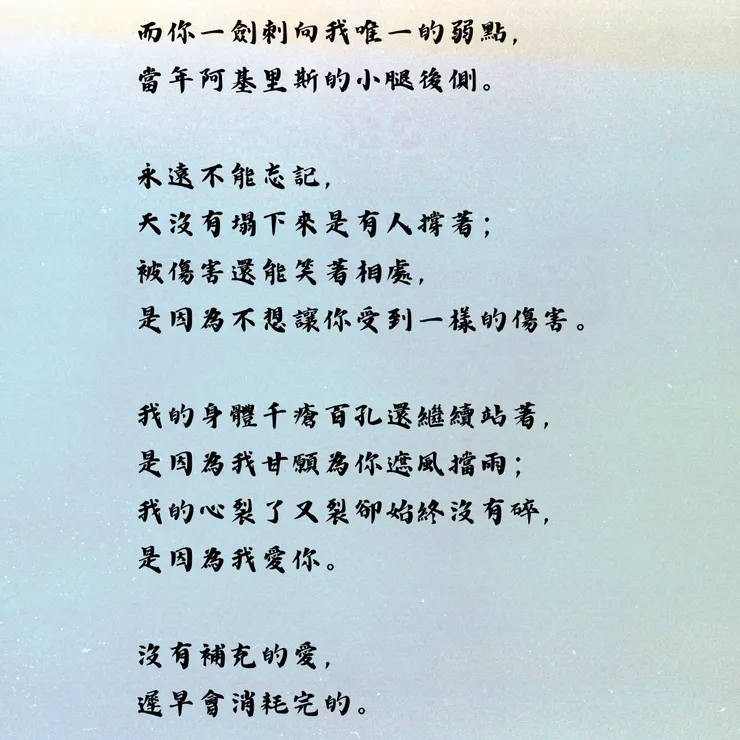 而你一劍刺向我唯一的弱點，
當年阿基里斯的小腿後側。
永遠不能忘記，
天沒有塌下來是有人撐著；
被傷害還能笑著相處，
是因為不想讓你受到一樣的傷害。
我的身體千瘡百孔還繼續站著，
是因為我甘願為你遮風擋雨；
我的心裂了又裂卻始終沒有碎，
是因為我愛你。
沒有補充的愛，
遲早會消耗完的。